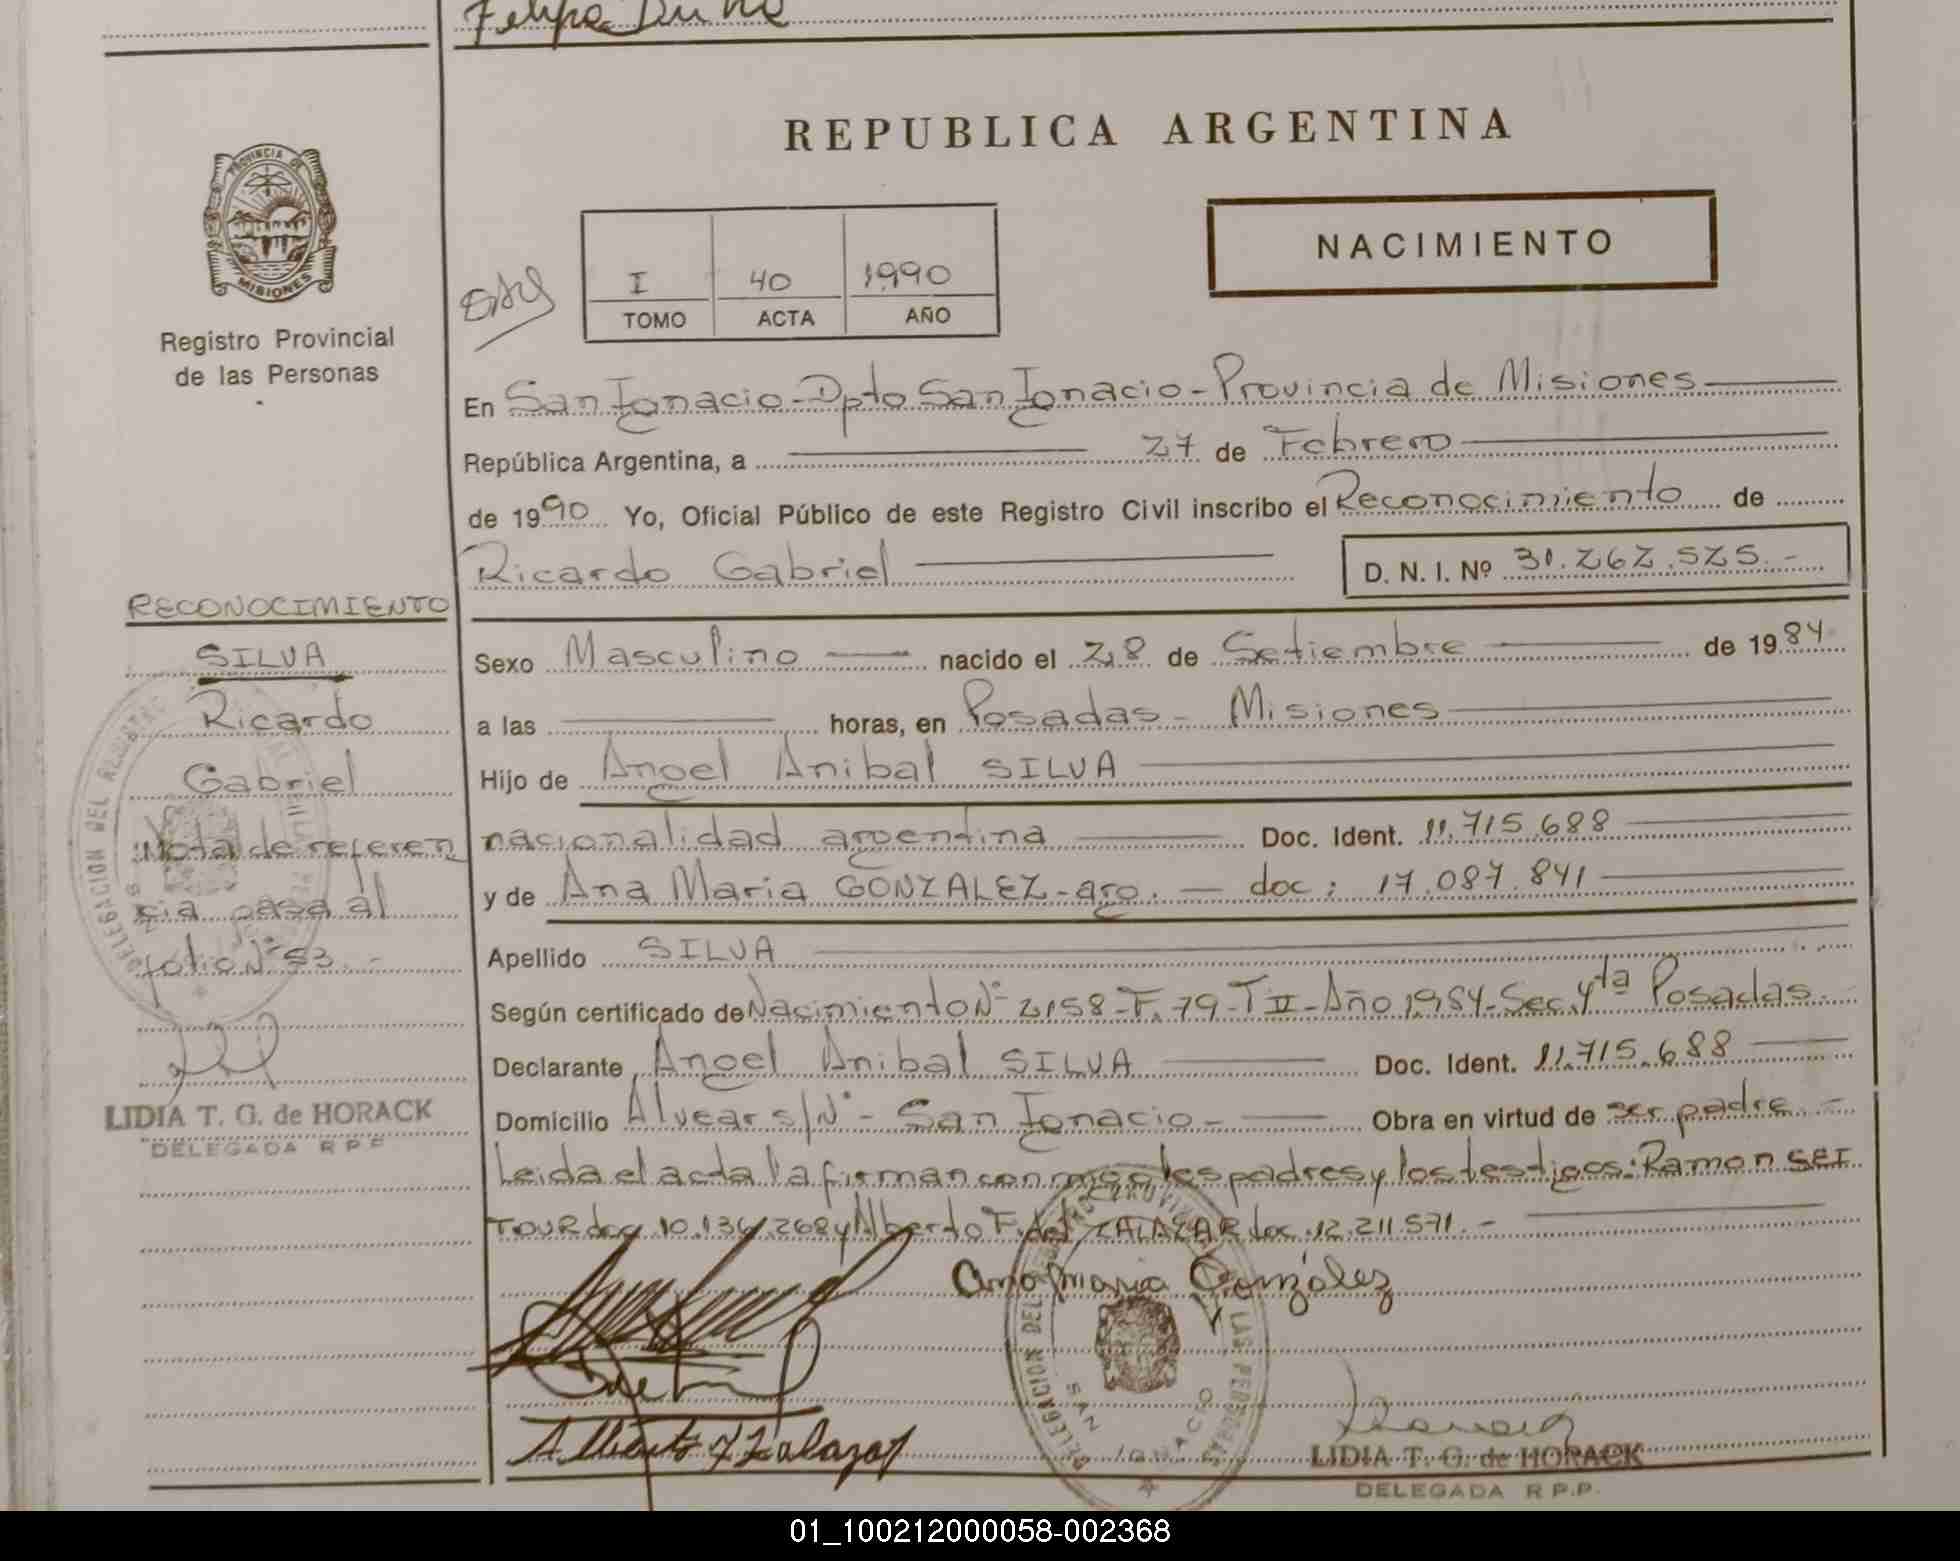 Felipa
REPUBLICA ARGENTINA
PROVINCIA DE
MISIONES
NACIMIENTO
I 40 1990
TOMO ACTA AÑO
Registro Provincial
de las Personas
En San Ignacio - Dpto San Ignacio - Provincia de Misiones
República Argentina, a 27 de Febrero
de 1990 Yo, Oficial Público de este Registro Civil inscribo el Reconocimiento de
Ricardo Gabriel D. N. I. Nº 31.262.525.-
RECONOCIMIENTO
SILVA
Ricardo
Gabriel
Nota de referen
cia pasa al
folio Nº 53.-
LIDIA T. G. de HORACK
DELEGADA R P P
Sexo Masculino nacido el 28 de Setiembre de 1984
a las horas, en Posadas - Misiones
Hijo de Angel Anibal SILVA
nacionalidad argentina Doc. Ident. 11.715.688
y de Ana Maria GONZALEZ - arg. - doc: 17.087.841
Apellido SILVA
Según certificado de Nacimiento Nº 2158 - F. 79 - T II - Año 1984 - Sec. 4ta Posadas.-
Declarante Angel Anibal SILVA Doc. Ident. 11.715.688
Domicilio Alvear s/Nº - San Ignacio - Obra en virtud de ser padre.-
Leida el acta la firman conmigo los padres y los testigos: Ramon SEI
TOUR doc. 10.136.268 y Alberto F. del ZALAZAR doc. 12.211.571.-
Ana Maria González
Alberto F Zalazar
DELEGACION DEL REGISTRO PROVINCIAL DE LAS PERSONAS
SAN IGNACIO
LIDIA T. G. de HORACK
DELEGADA R P.P.
01_100212000058-002368